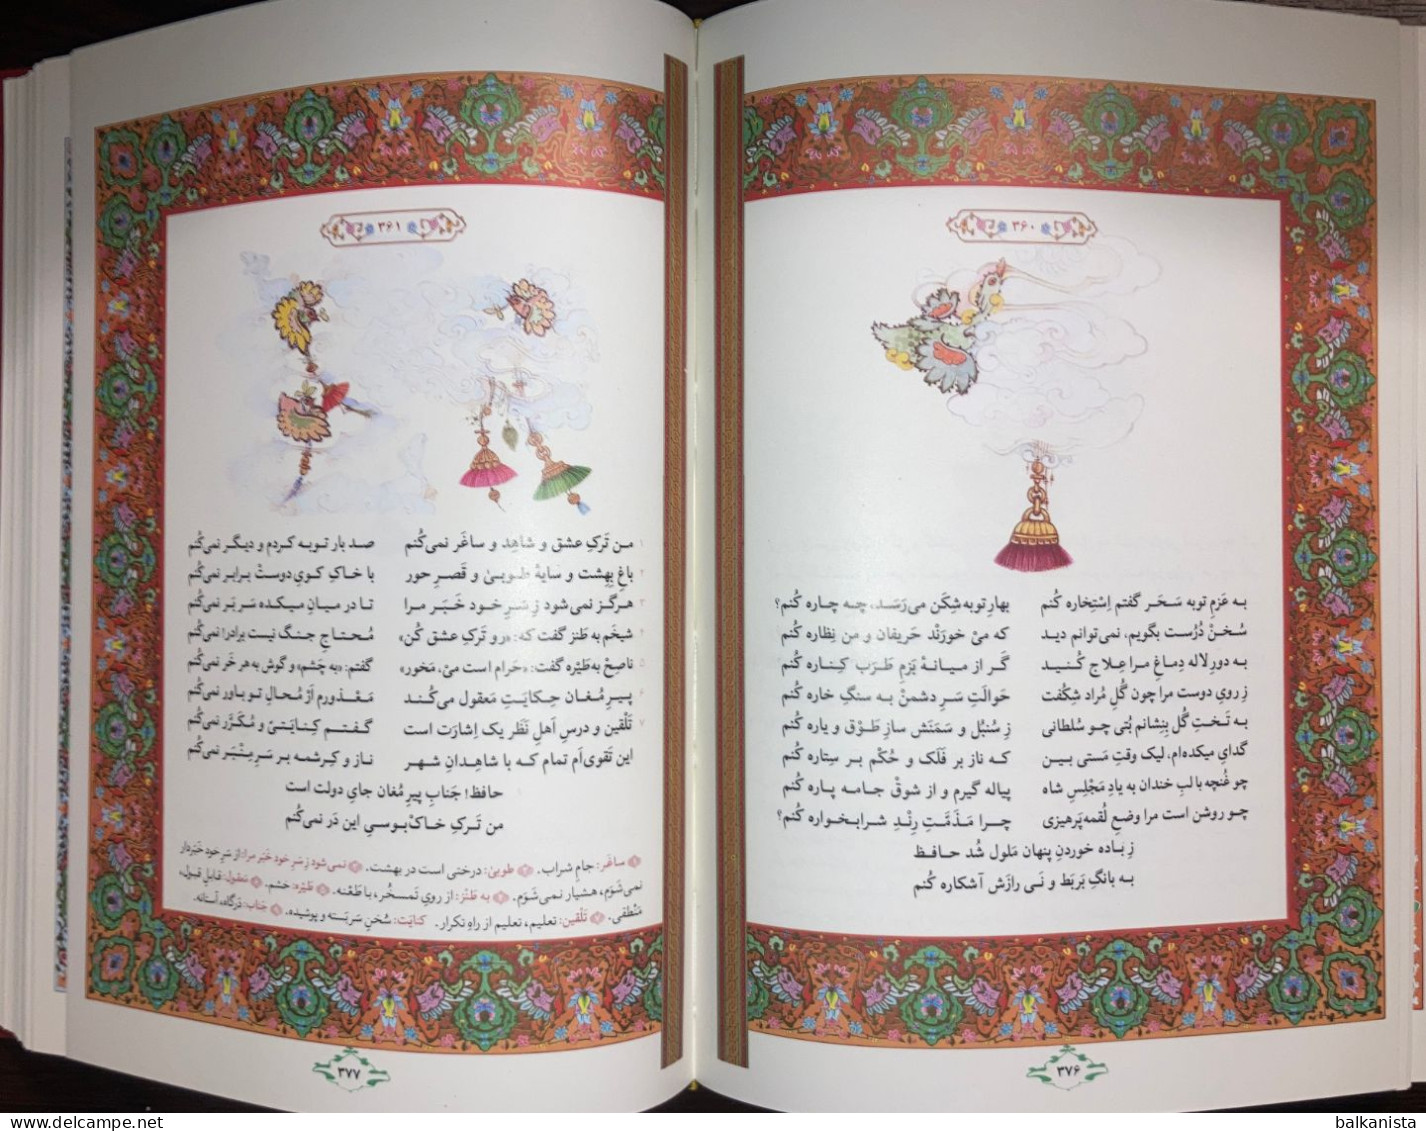 ۳۶۰
به عَزمِ توبه سَحَر گفتم اِسْتِخاره کُنم بهارِ توبه‌شِکَن می‌رَسَد، چه چاره کُنم؟
سُخنْ دُرُست بگویم، نمی‌توانم دید که مِیْ خورَنْد حَریفان و من نِظاره کُنم
به دورِ لاله دِماغِ مرا عِلاج کُنید گَر از میانهٔ بَزمِ طَرَب کِناره کُنم
ز رویِ دوست مرا چون گُلِ مُراد شِکُفت حَوالَتِ سَرِ دشمنْ به سنگِ خاره کُنم
به تَختِ گُل بِنِشانم بُتی چو سُلطانی ز سُنبُل و سَمَنَش سازِ طَوْق و یاره کُنم
گدایِ میکده‌ام، لیک وقتِ مَستی بین که ناز بر فَلَک و حُکْم بر سِتاره کُنم
چو غُنچه با لبِ خندان به یادِ مَجْلِسِ شاه پیاله گیرم و از شوقْ جامه پاره کُنم
چو روشن است مرا وضعِ لُقمه‌پَرهیزی چرا مَذمَّتِ رِنْدِ شرابخواره کُنم؟
ز باده خوردنِ پنهان مَلول شُد حافظ
به بانگِ بَربَط و نَی رازَش آشکاره کُنم
۳۷۶
۳۶۱
۱ من تَرکِ عشق و شاهِد و ساغَر نمی‌کُنم صد بار توبه کردم و دیگر نمی‌کُنم
۲ باغِ بِهِشت و سایهٔ طوبیٰ و قَصرِ حور با خاکِ کویِ دوستْ برابر نمی‌کُنم
۳ هرگز نمی‌شود زِ سَرِ خود خَبَر مرا تا در میانِ میکده سَر بَر نمی‌کُنم
۴ شیخَم به طَنز گفت که: «رو تَرکِ عشق کُن» مُحتاجِ جنگ نیست برادر! نمی‌کُنم
۵ ناصِحْ به‌طَیْره گفت: «حَرام است مِیْ، مَخور» گفتم: «به چَشم» و گوش به هر خَر نمی‌کُنم
۶ پیرِ مُغان حِکایَتِ معقول می‌کُند مَعْذورم اَرْ مُحالِ تو باور نمی‌کُنم
۷ تَلْقین و درسِ اَهلِ نَظَر یک اِشارَت است گفتم کِنایَتیّ و مُکرَّر نمی‌کُنم
این تَقوی‌اَم تمام که با شاهِدانِ شهر ناز و کِرشمه بر سَرِ مِنْبَر نمی‌کُنم
حافظ! جَنابِ پیرِ مُغان جایِ دولت است
من تَرکِ خاک‌بوسیِ این دَر نمی‌کُنم
۱ ساغَر: جامِ شراب. ۲ طوبیٰ: درختی است در بهشت. ۳ نمی‌شود زِ سَرِ خود خَبَر مرا: از سَرِ خود خَبَردار
نمی‌شَوَم، هشیار نمی‌شَوَم. ۴ به طَنْز: از رویِ تَمسخُر، با طَعْنه. ۵ طَیْره: خشم. ۶ معقول: قابلِ قبول،
مَنْطَقی. ۷ تَلْقین: تعلیم، تعلیم از راهِ تکرار. کنایَت: سُخَنِ سَربَسته و پوشیده. ۹ جَناب: دَرگاه، آستانه.
۳۷۷
balkanista